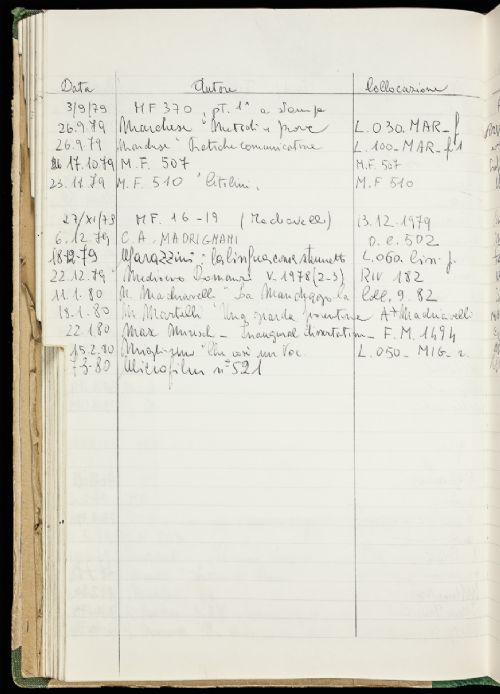 Data Autore Collocazione
3/9/79 MF 370 pt. 1ª a stampa
26.9.79 Marchese "Metodi e prove L.030.MAR-f
26.9.79 Marchese Pratiche comunicative L.100-MAR-f1
17.10.79 M.F. 507 M.F. 507
23.11.79 M.F. 510 M.F 510
27/XI/79 MF. 16-19 (Machiavelli) 13.12-1979
6.12.79 C.A. MADRIGNANI 502
18.12.79 la lingua come strumento L.060.
22.12.79 Medioevo Romanzo V. 1978 (2-3) RIV 182
11.1.80 N. Machiavelli "La Mandragola Coll. 9.82
18.1.80 M. Martelli Una fiorentina A+Machiavelli
22.1.80 Max - Inaugural dissertation - F.M. 1494
15.2.80 L.050-MIG-2
7-3-80 Microfilm n° 521